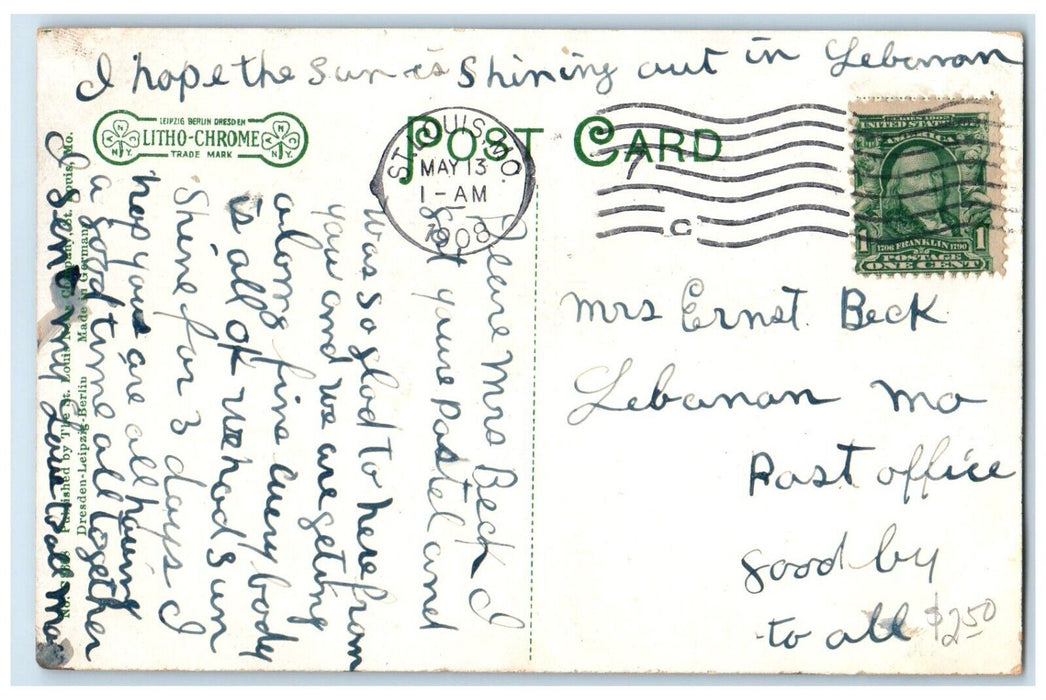 I hope the sun is Shining out in Lebanan
LEIPZIG BERLIN DRESDEN
LITHO-CHROME
TRADE MARK
N.Y.
N.Y.
POST CARD
ST. LOUIS, MO.
MAY 13
1-AM
1908
C
UNITED STATES OF
AMERICA
1706 FRANKLIN 1790
1 POSTAGE 1
ONE CENT
Mrs Ernst. Beck
Lebanan Mo
Post office
good by
to all
$2.50
Deare Mrs Beck I
Got youre Postel and
was so glad to here from
you and we are geting
alomg fine every body
is all of we had sun
Shine for 3 days I
hop you are all having
a good time all together
I Sent my Love to all
Published by The St. Louis News Company, St. Louis, Mo.
Dresden-Leipzig-Berlin Made in Germany